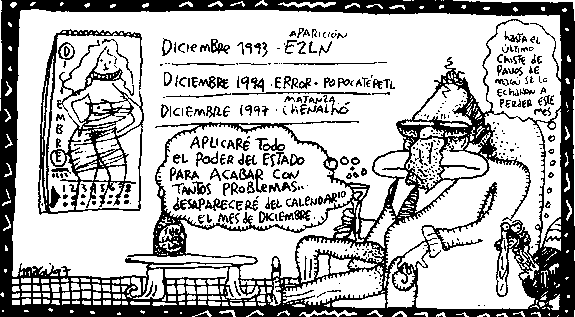 DICIEMBRE
1 2 3 4 5 6 7 8
APARICIÓN
DICIEMBRE 1993 - EZLN
DICIEMBRE 1994 - ERROR - POPOCATÉPETL
MATANZA
DICIEMBRE 1997 - CHENALHÓ
APLICARÉ TODO
EL PODER DEL ESTADO
PARA ACABAR CON
TANTOS PROBLEMAS..
DESAPARECERÉ DEL CALENDARIO
EL MES DE DICIEMBRE
hASTA EL
ÚLTIMO
ChISTE DE
PAVOS DE
SE LO
EChARON A
PERDER ESTE
MES